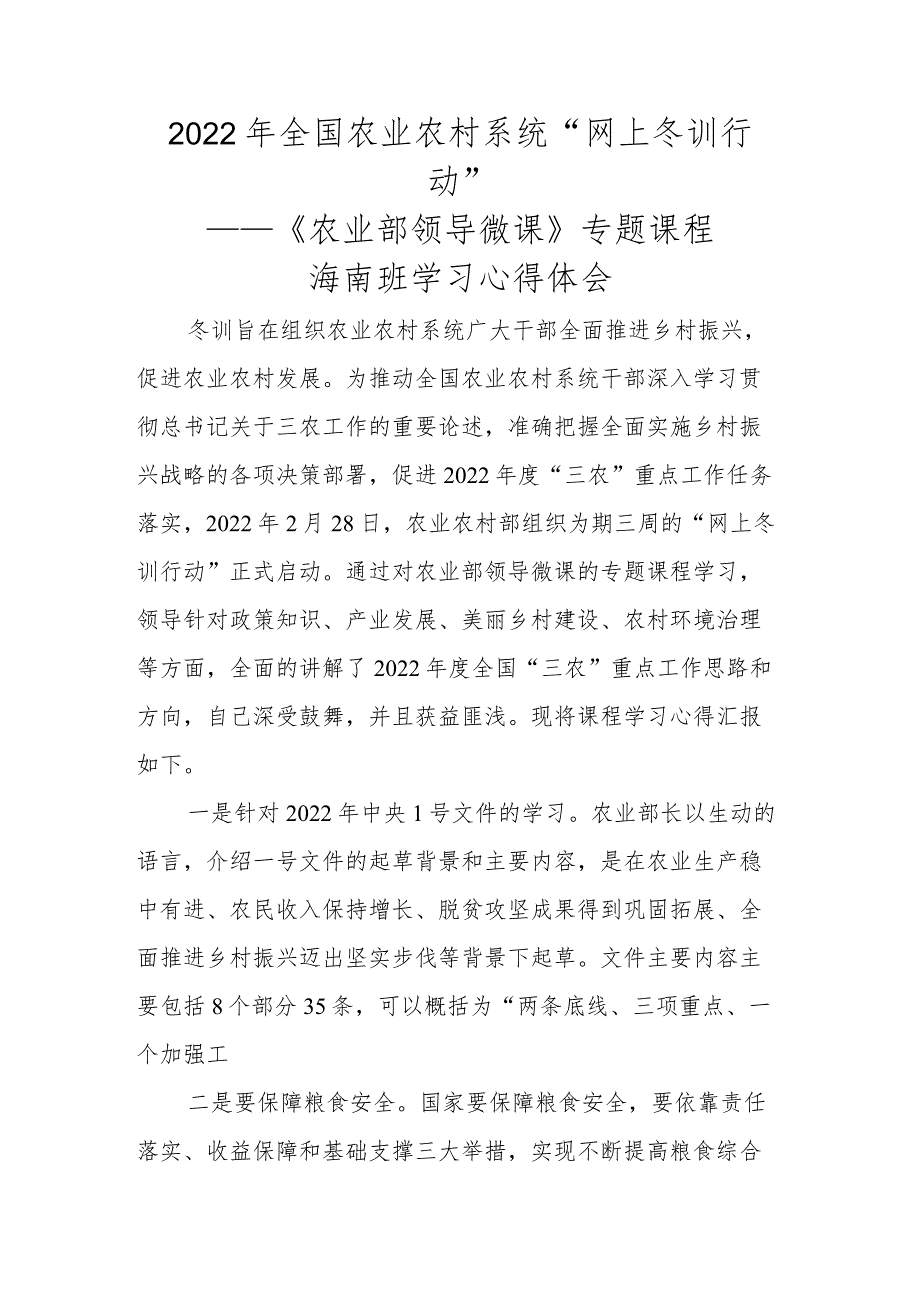 2022 年全国农业农村系统“网上冬训行
动”
——《农业部领导微课》专题课程
海南班学习心得体会
冬训旨在组织农业农村系统广大干部全面推进乡村振兴，
促进农业农村发展。为推动全国农业农村系统干部深入学习贯
彻总书记关于三农工作的重要论述，准确把握全面实施乡村振
兴战略的各项决策部署，促进 2022 年度“三农”重点工作任务
落实，2022 年 2 月 28 日，农业农村部组织为期三周的“网上冬
训行动”正式启动。通过对农业部领导微课的专题课程学习，
领导针对政策知识、产业发展、美丽乡村建设、农村环境治理
等方面，全面的讲解了 2022 年度全国“三农”重点工作思路和
方向，自己深受鼓舞，并且获益匪浅。现将课程学习心得汇报
如下。
一是针对 2022 年中央 1 号文件的学习。农业部长以生动的
语言，介绍一号文件的起草背景和主要内容，是在农业生产稳
中有进、农民收入保持增长、脱贫攻坚成果得到巩固拓展、全
面推进乡村振兴迈出坚实步伐等背景下起草。文件主要内容主
要包括 8 个部分 35 条，可以概括为“两条底线、三项重点、一
个加强工
二是要保障粮食安全。国家要保障粮食安全，要依靠责任
落实、收益保障和基础支撑三大举措，实现不断提高粮食综合